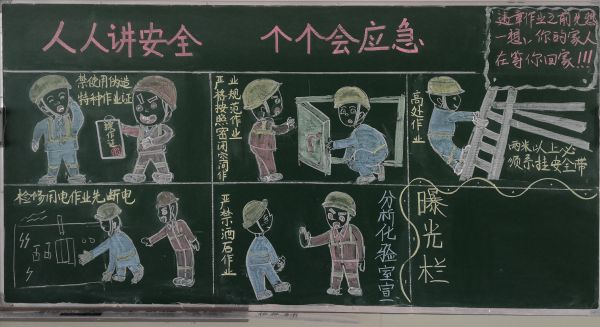 人人讲安全 个个会应急
违章作业之前先想
一想，你的家人
在等你回家!!!
禁使用伪造
特种作业证
操作证
严格按照密闭空间作
业规范作业
高处作业
两米以上必
须系挂安全带
检修用电作业先断电
严禁酒后作业
分析化验室宣
曝光栏